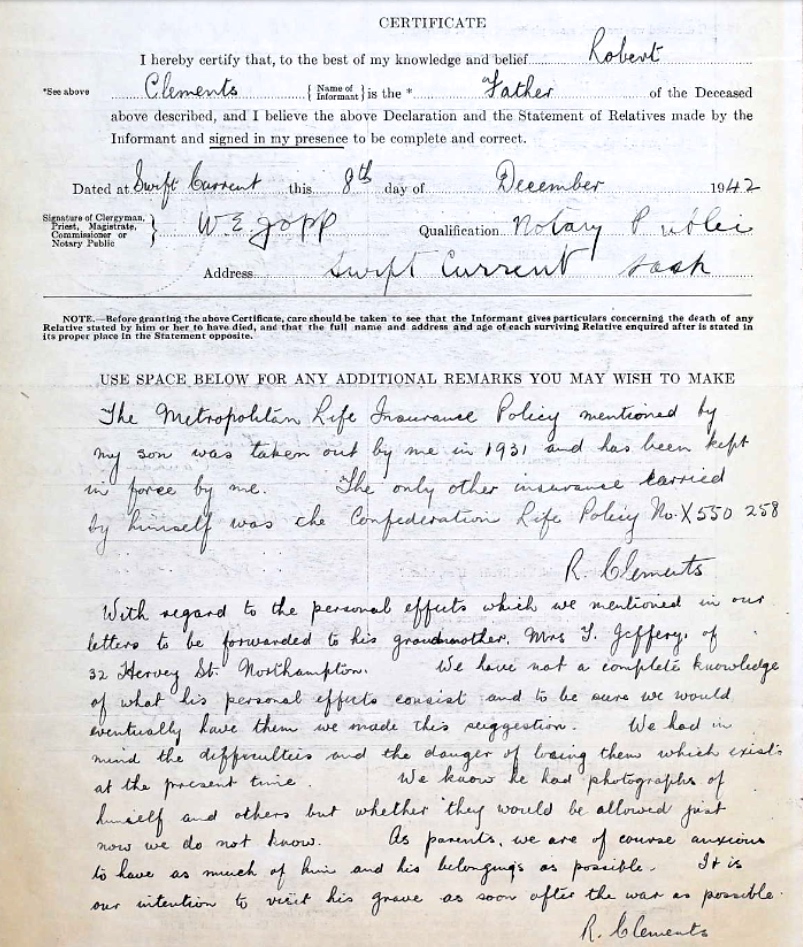 CERTIFICATE
I hereby certify that, to the best of my knowledge and belief Robert
*See above Clements { Name of Informant } is the * Father of the Deceased
above described, and I believe the above Declaration and the Statement of Relatives made by the
Informant and signed in my presence to be complete and correct.
Dated at Swift Current this 8th day of December 1942
Signature of Clergyman,
Priest, Magistrate,
Commissioner or
Notary Public } W. E. Jopp Qualification Notary Public
Address Swift Current Sask
NOTE.—Before granting the above Certificate, care should be taken to see that the Informant gives particulars concerning the death of any
Relative stated by him or her to have died, and that the full name and address and age of each surviving Relative enquired after is stated in
its proper place in the Statement opposite.
USE SPACE BELOW FOR ANY ADDITIONAL REMARKS YOU MAY WISH TO MAKE
The Metropolitan Life Insurance Policy mentioned by
my son was taken out by me in 1931 and has been kept
in force by me. The only other insurance carried
by himself was the Confederation Life Policy No. X550 258
R. Clements
With regard to the personal effects which we mentioned in our
letters to be forwarded to his grandmother, Mrs T. Jeffery, of
32 Hervey St. Northampton. We have not a complete knowledge
of what his personal effects consist and to be sure we would
eventually have them we made this suggestion. We had in
mind the difficulties and the danger of losing them which exists
at the present time. We know he had photographs of
himself and others but whether they would be allowed just
now we do not know. As parents, we are of course anxious
to have as much of him and his belongings as possible. It is
our intention to visit his grave as soon after the war as possible.
R. Clements